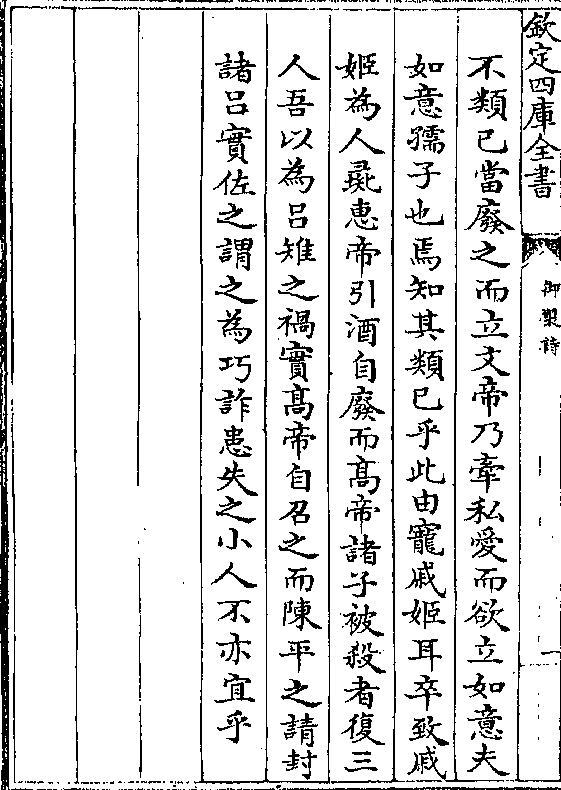 欽定四庫全書
御製詩
不類已當廢之而立文帝乃牽私愛而欲立如意夫
如意孺子也焉知其類已乎此由寵戚姬耳卒致戚
姬為人彘惠帝引酒自廢而髙帝諸子被殺者復三
人吾以為呂雉之禍實髙帝自召之而陳平之請封
諸呂實佐之謂之為巧詐患失之小人不亦宜乎